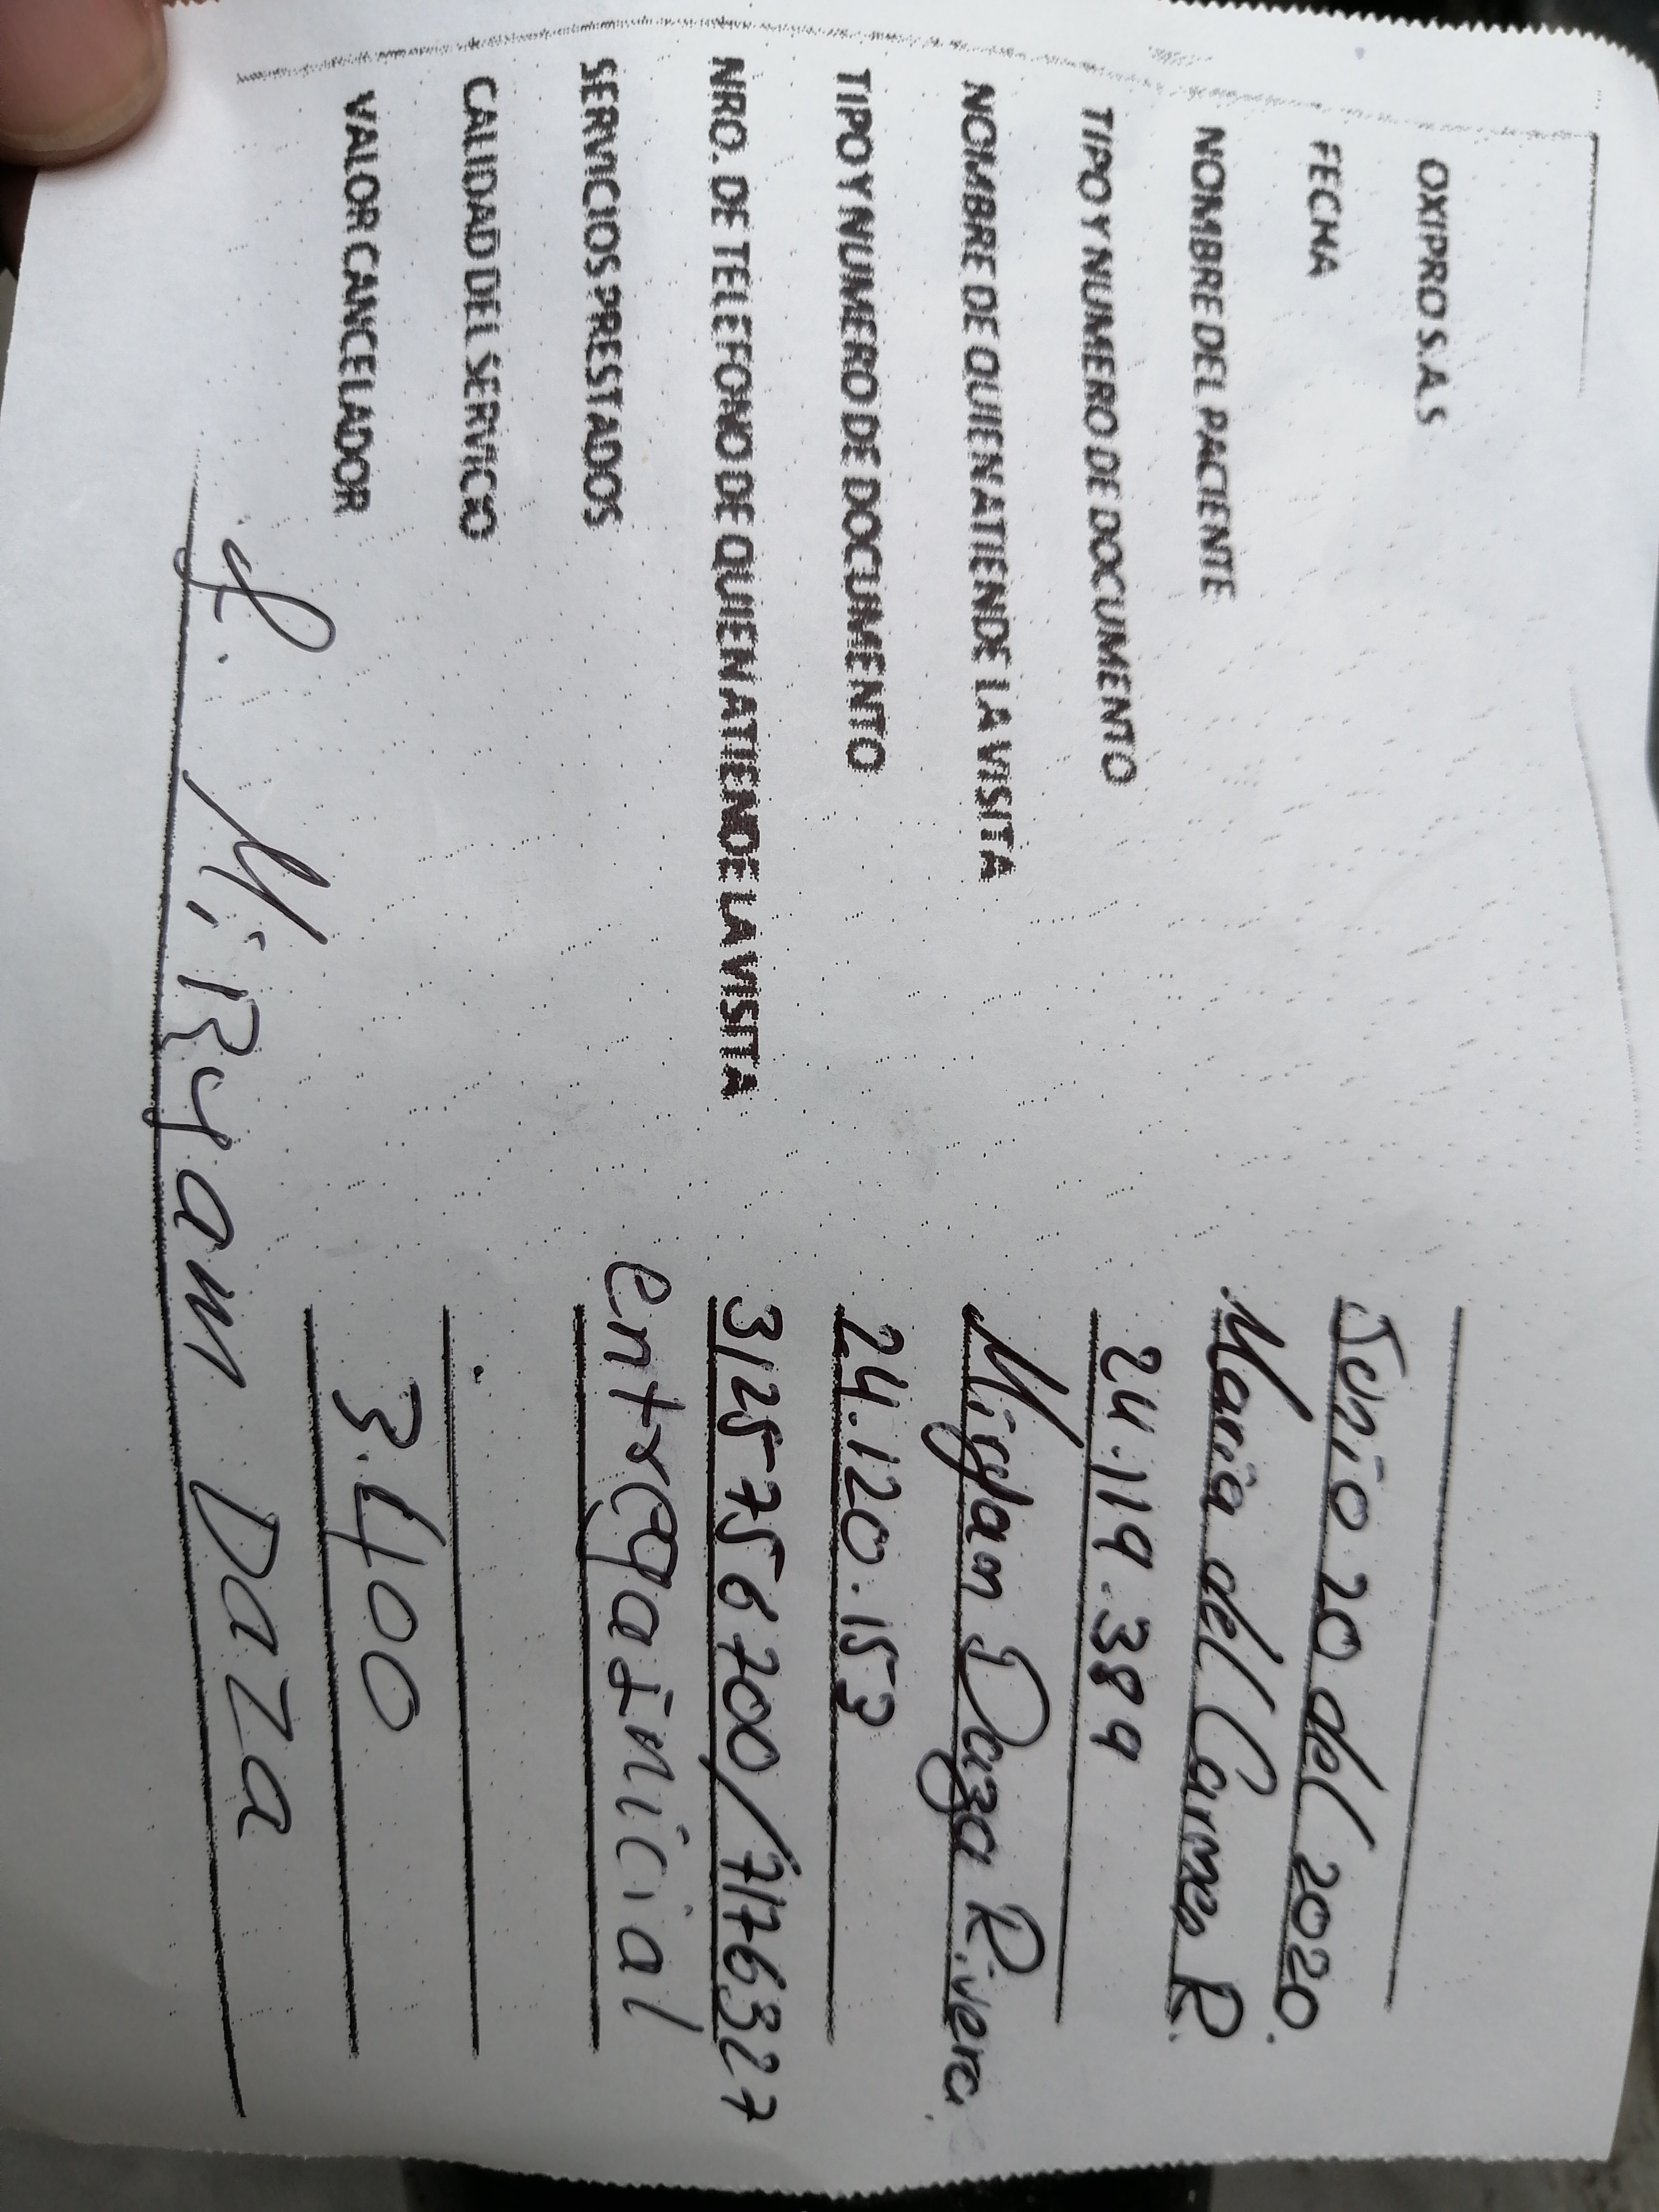 OXIPRO S.A.S
FECHA Junio 20 del 2020.
NOMBRE DEL PACIENTE Maria del Carmen R.
TIPO Y NUMERO DE DOCUMENTO 24.119.389
NOMBRE DE QUIEN ATIENDE LA VISITA Miryam Daza Rivera.
TIPO Y NUMERO DE DOCUMENTO 24.120.153
NRO. DE TELEFONO DE QUIEN ATIENDE LA VISITA 3125756700/7176327
SERVICIOS PRESTADOS entrega inicial
CALIDAD DEL SERVICIO
VALOR CANCELADOR 3.400
f. MiRyam Daza